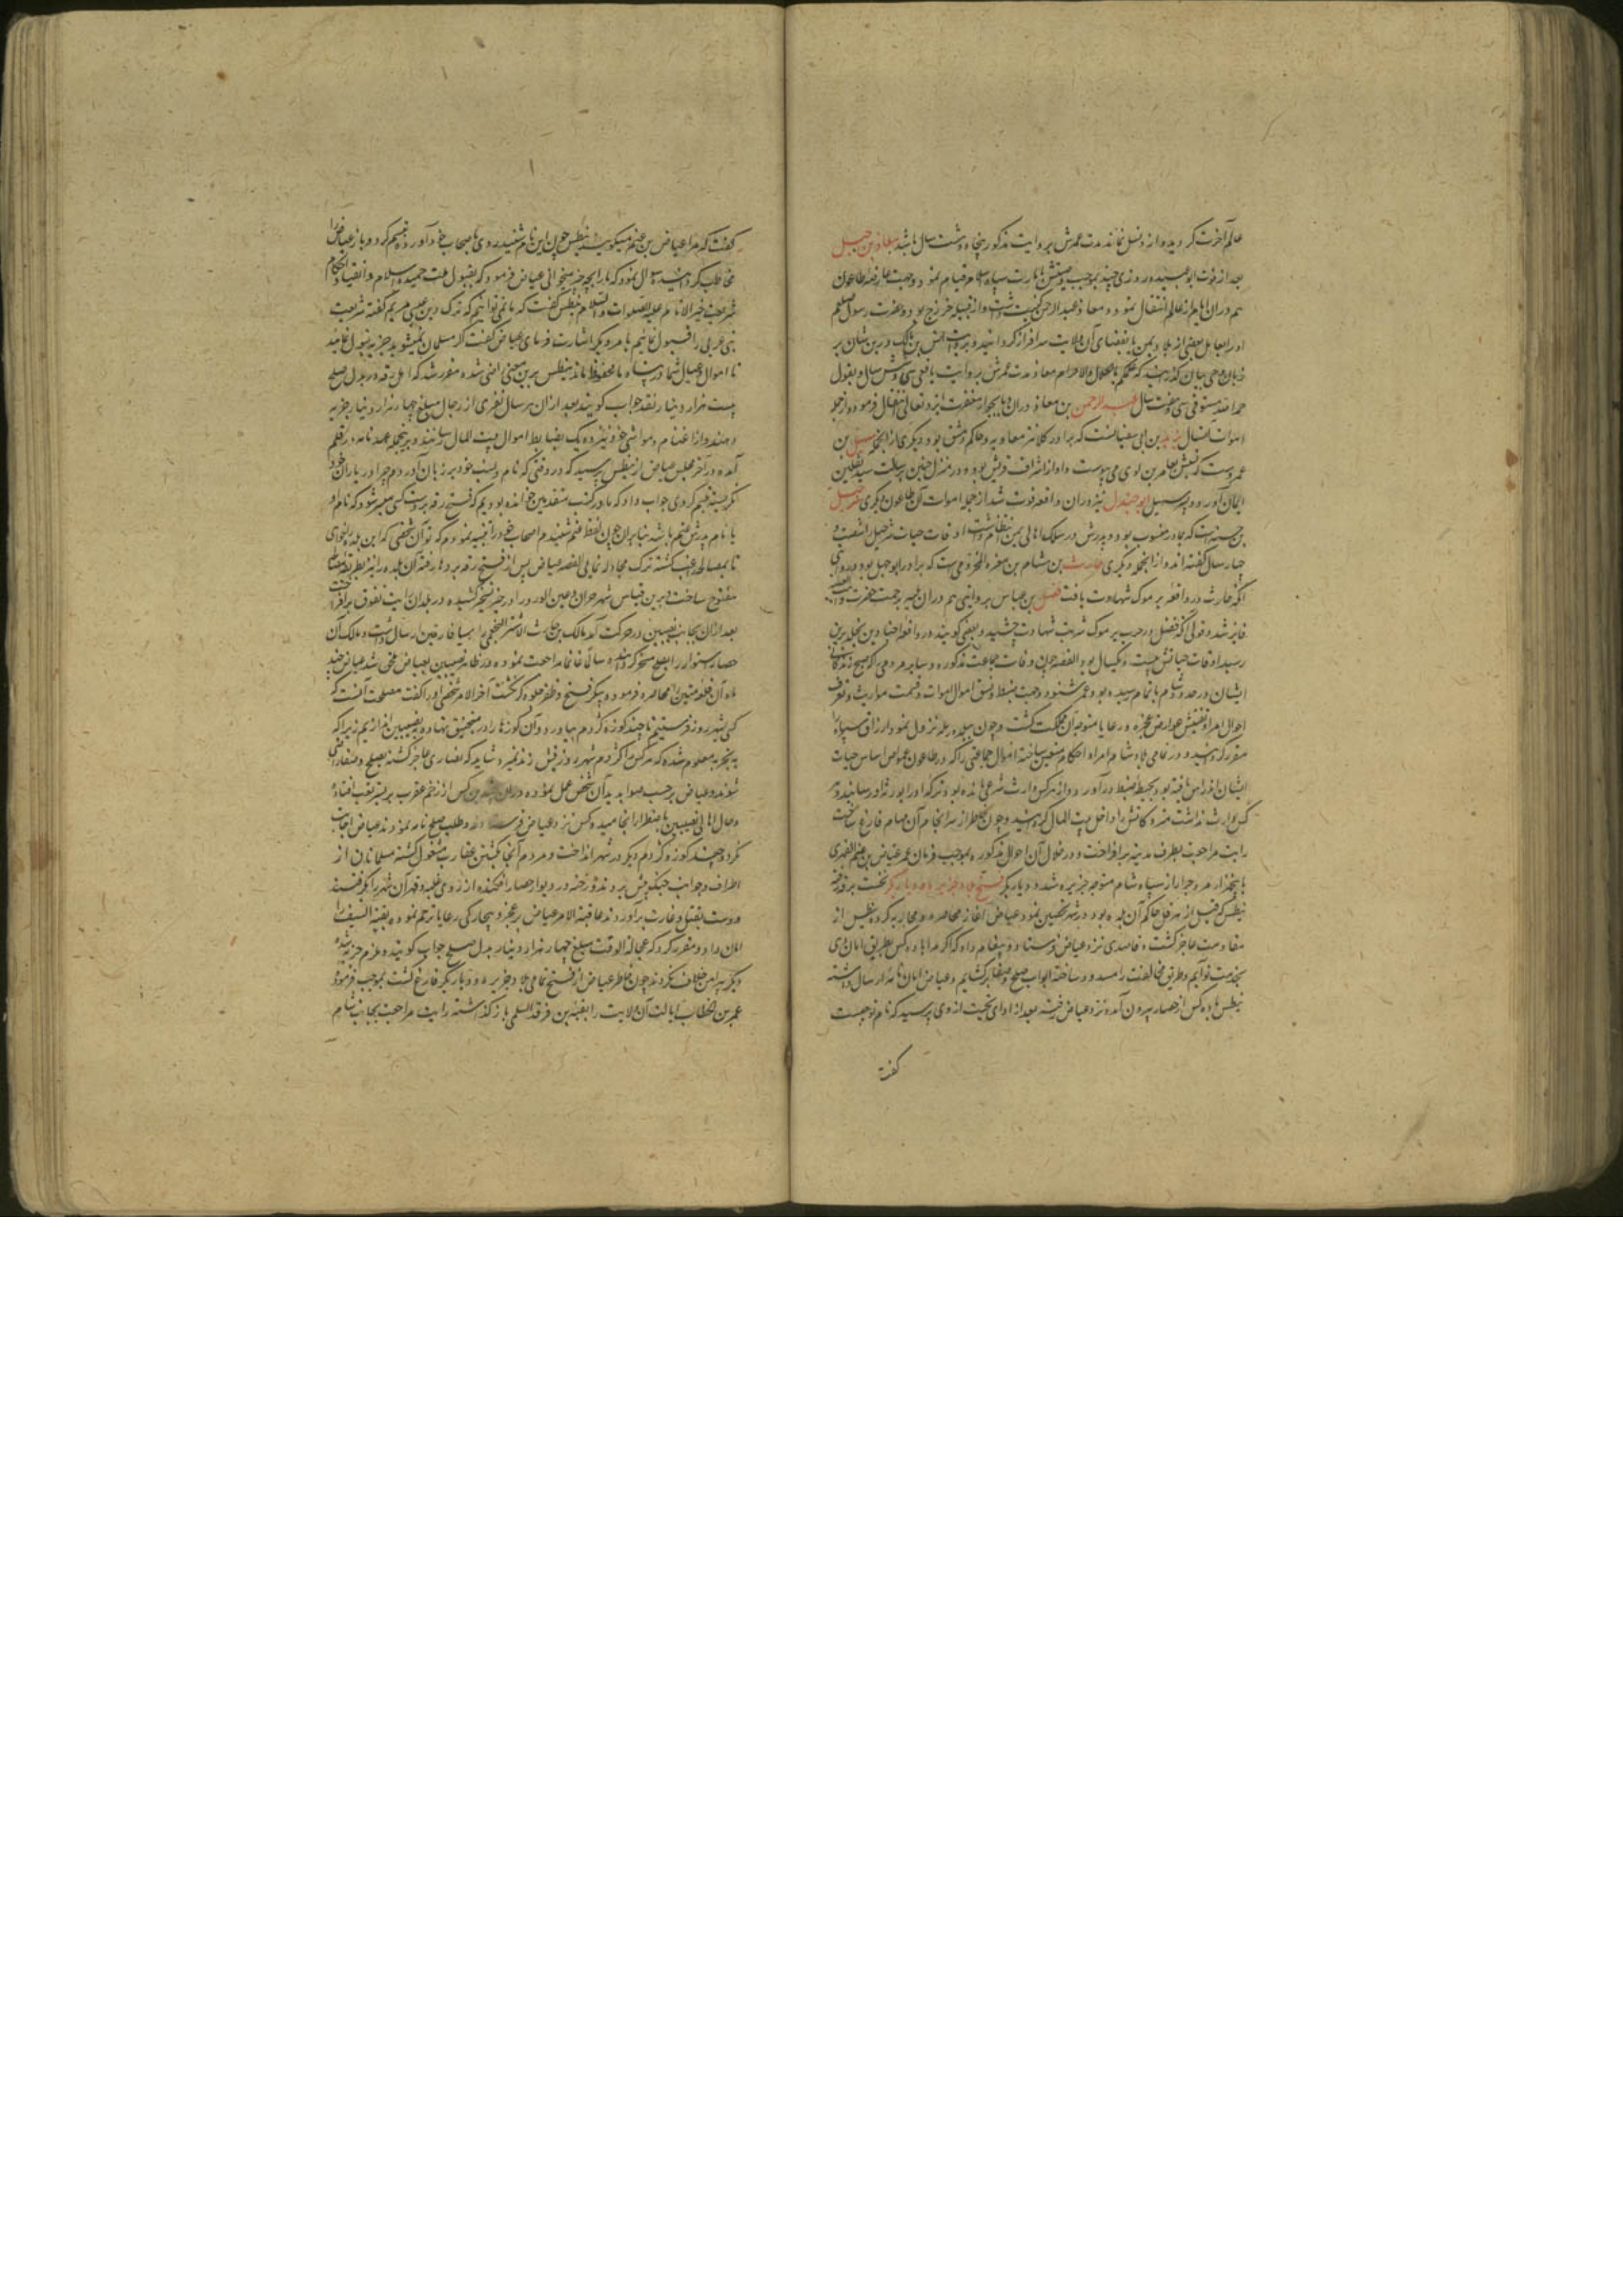 عالم آخرت گردید و از و نسل نماند مدت عمرش بروایت مذکور پنجاه و هشت سال باشد معاذ بن جبل
بعد از فوت ابو عبیده روزی چند بموجب وصیتش بامارت سپاه اسلام قیام نمود و جهت عارضه طاعون
هم دران ایام از عالم انتقال نمود و معاذ عبدالرحمن کنیت داشت و از قبیله خزرج بود و حضرت رسول صلعم
او را بعامل بعضی از بلاد یمن یا بقضای آن ولایت سرافراز گردانید و بروایت انس بن مالک در بن شان بر
زبان وحی بیان گذرانید که اعلمکم بالحلال والحرام معاذ مدت عمرش بروایت یافعی سی و شش سال و بقول
حمدالله مستوفی سی و هفت سال عبدالرحمن بن معاذ دران وبا بجوار مغفرت ایزد تعالی انتقال فرمود و از جمله
اموات امسال یزید بن ابی سفیانست که برادر کلانتر معاویه و حاکم دمشق بود و دیگری از انجمله سهیل بن
عمروست که نسبش بعامر بن لوی می پیوست و او از اشراف قریش بود و در منزل حنین برسالت سید ثقلین
ایمان آورد و پسر سهیل ابو جندل نیز دران واقعه فوت شد از جمله اموات آن طاعون دیگری شرحبیل
بن حسنه است که بمادر منسوب بود و پدرش در سلک اهالی یمن انتظام داشت اوقات حیات شرحبیل شصت و
چهار سال گفته اند و از انجمله دیگری حارث بن هشام بن مغیره المخزومی است که برادر ابوجهل بود و بروایتی
آنکه حارث در واقعه یرموک شهادت یافت فضل بن عباس بروایتی هم دران
فایز شد و قولی آنکه فضل در حرب یرموک شربت شهادت چشید و بعضی گویند در واقعه اجنادین
رسید اوقات حیاتش بیست و یکسال بود القصه چون وفات جماعت مذکوره و سایر مردمی که
ایشان در حدود شام باتمام رسیده بود و عمر شنود و جهت ضبط و نسق اموال اموات و قسمت مواریث و تعرف
احوال امرا و تفتیش عوارض عجزه و رعایا متوجه آن مملکت گشت و چون ببلده رمله نزول نمود ارزاق سپاه
مقرر گردانید و در تمامی بلاد شام امراء احکام متعین ساخته اموال جماعتی را که در طاعون عمواس اساس حیات
ایشان اندراس یافته بود بحیطه ضبط درآورد و از هر کس وارث شرعی مانده بود ترکه او را بورثه او رسانید و هر
کس وارث نداشت متروکاتش را داخل بیت المال گردانید و چون خاطر از سرانجام آن مهام فارغ ساخت
رایت مراجعت بطرف مدینه برافراخت و در خلال آن احوال مذکوره بموجب فرمان عمر عیاض بن غنم الفهری
با پنجهزار مرد جرار از سپاه شام متوجه جزیره شد و دیاربکر فتح بلاد جزیره و دیاربکر نخست بر رقه
نیطس که قبل از هرقل حاکم آن بلده بود در شهر تحصین نمود عیاض آغاز محاصره و محاربه کرد و نیطس از
مقاومت عاجز گشت و قاصدی نزد عیاض فرستاد و پیغام داد که اگر مرا با ده کس بطریق امان دهی
بخدمت تو آیم و طریق مخالفت را مسدود ساخته ابواب صلح و صفا برگشایم و عیاض امان نامه ارسال داشته
نیطس با ده کس از حصار بیرون آمده نزد عیاض رفت بعد از ادای تحیت از وی پرسید که نام تو چیست
گفت
گفت که مرا عیاض بن غنم میگویند نیطس چون این نام شنید روی باصحاب خود آورده تبسم کرد و باز عیاض را
مخاطب گردانیده سوال نمود که ما را بچه چیز میخوانی عیاض فرمود که بقبول ملت حمیده اسلام و انقیاد احکام
شریعت خیر الانام علیه الصلوات والسلام نیطس گفت که ما نمی توانیم که ترک دین عیسی مریم گفته شریعت
نبی عربی را قبول نمائیم بامر دیگر اشارت فرمای عیاض گفت اگر مسلمان نمیشوید جزیه قبول نمائید
تا اموال و عیال شما در پناه ما محفوظ ماند نیطس برین معنی راضی شده مقرر شد که اهل رقه در بدل صلح
بیست هزار دینار نقد جواب گویند بعد ازان هر سال نفری از رجال مبلغ چهار هزار دینار جزیه
دهند و از اغنام و مواشی خود نیز ده یک بضابط اموال بیت المال رسانند و برینجمله عهدنامه در قلم
آمد و در آخر مجلس عیاض از نیطس پرسید که در وقتی که نام و نسب خود بر زبان آوردم چرا در یاران خود
نگریسته تبسم کردی جواب داد که ما در کتب متقدمین خوانده بودیم که فتح رقه بر دست کسی میسر شود که نام او
یا نام پدرش غنم باشد بنابران چون لفظ غنم شنیدم اصحاب خود را تنبیه نمودم که تو آن شخصی که این بلده را بخوای
تا بمصالحه راغب گشته ترک مجادله نمایی القصه عیاض پس از فتح رقه برها رفته آن بلده را نیز بطریق
مفتوح ساخت و برین قیاس شهر حران و عین الورد را در حیز تسخیر کشیده در بلدان رایت تفوق برافراخت
بعد ازان بجانب نصیبین در حرکت آمد مالک بن حارث الاشتر النخعی را بمیافارقین ارسال داشت و مالک آن
حصار استوار را بصلح مسخر گردانیده سالما غانما مراجعت نموده در ظاهر نصیبین بعیاض ملحق شد عیاض چند
ماه آن قلعه متین را محاصره فرموده پیکر فتح و ظفر جلوه گر نگشت آخر الامر شخصی او را گفت مصلحت آنست که
کسی بشهرزور فرستیم تا چند کوزه کژدم بیاورد و آن کوزها را در منجنیق نهاده بنصیبین اندازیم زیرا که
بتجربه معلوم شده که هر کس را کژدم شهرزور نیش زند نمیرد شاید که نصاری عاجز گشته بصلح و صفا راضی
شوند و عیاض برحسب صوابدید آن شخص عمل نموده
وصال اهالی نصیبین باضطرار انجامیده کس نزد عیاض فرستادند و طلب صلح نامه نمودند عیاض اجابت
نکرد و چند کوزه کژدم دیگر در شهر انداخت و مردم آنجا بکشتن عقارب مشغول گشته مسلمانان از
اطراف و جوانب جنگ پیش بردند و رخنه در دیوار حصار افکنده از روی غلبه و قهر آن شهر را بگرفتند
و دست بقتل و غارت برآوردند عاقبة الامر عیاض بر عجز و بیچارگی رعایا ترحم نموده بقیة السیف را
امان داد و مقرر کرد که عجالة الوقت مبلغ چهار هزار دینار بدل صلح جواب گویند و ملزم جزیه شده
دیگر پیرامن خلاف نگردند چون خاطر عیاض از فتح تمامی بلاد جزیره و دیاربکر فارغ گشت بموجب فرموده
عمر بن الخطاب ایالت آن ولایت را بعتبه بن فرقد السلمی باز گذاشته رایت مراجعت بجانب شام